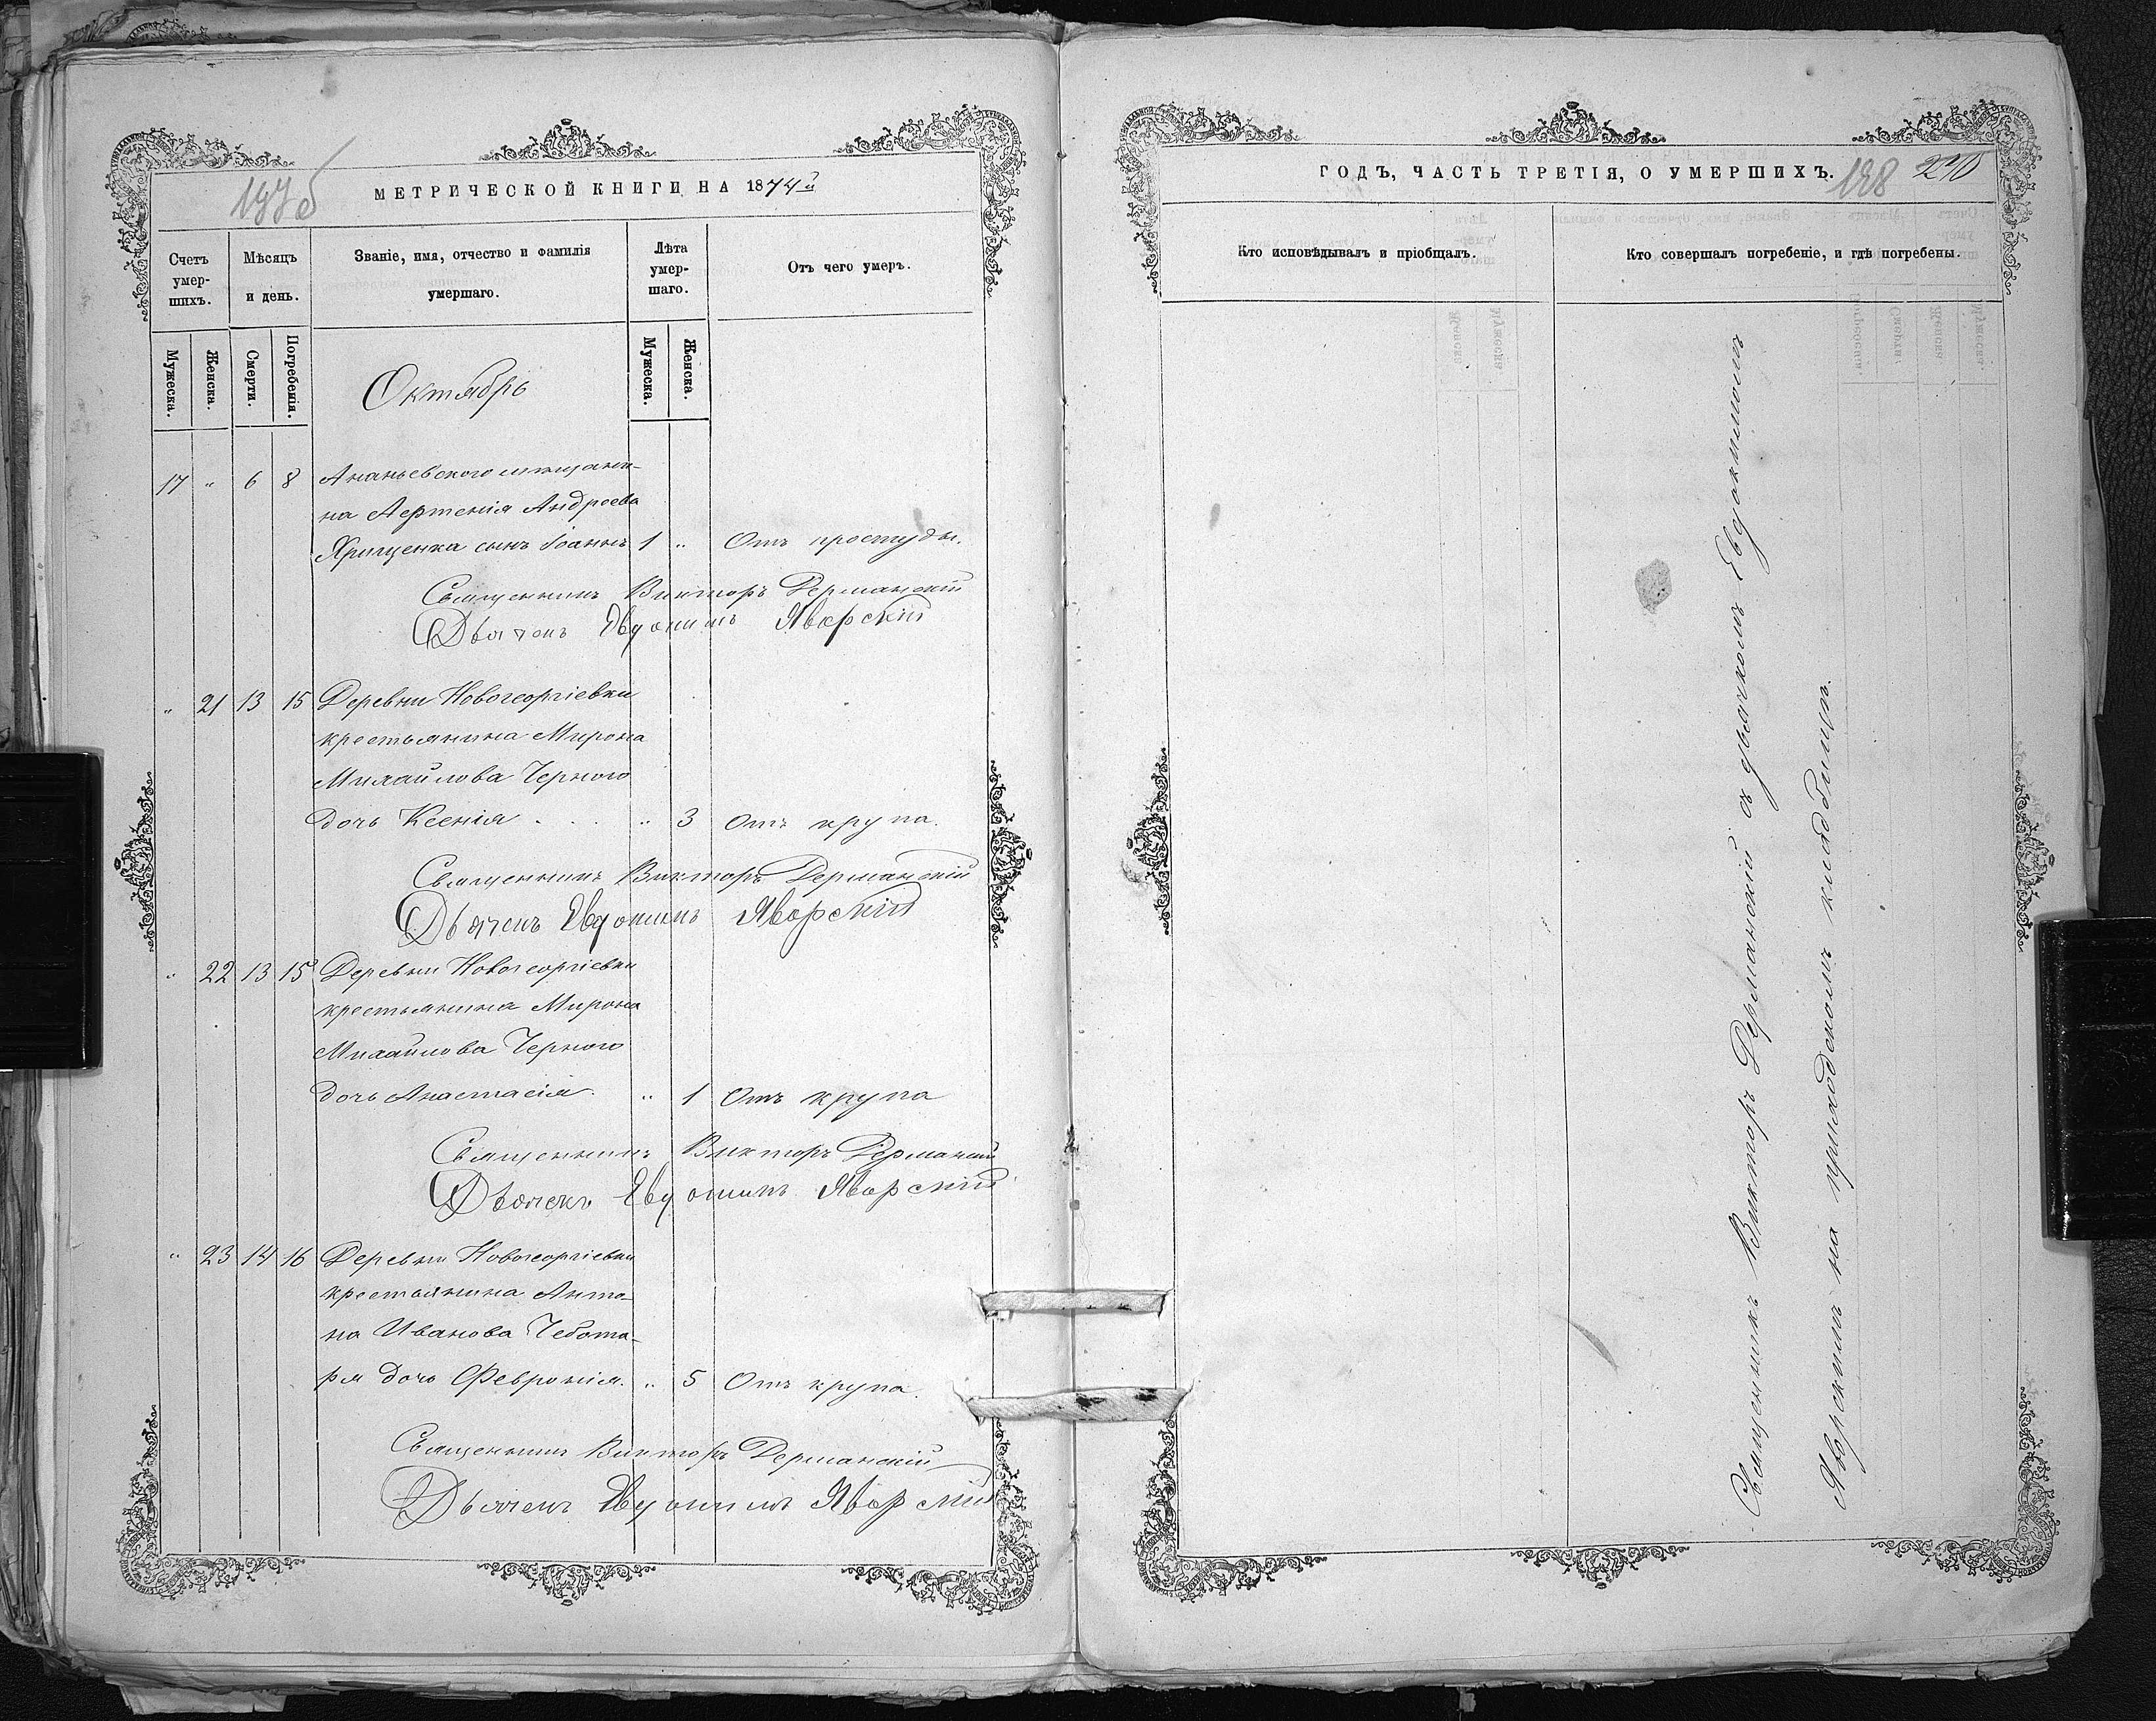 197б
МЕТРИЧЕСКОЙ КНИГИ НА 1874й
Счетъ умершихъ.
Мѣсяцъ и день.
Званіе, имя, отчество и фамилія умершаго.
Лѣта умершаго.
Отъ чего умеръ.
Мужеска.
Женска.
Смерти.
Погребенія.
Мужеска.
Женска.
Октябрь
17 " 6 8 Ананьевского мѣщани-
на Аертенія Андреева
Хрищенка сынъ Іоаннъ 1 " Отъ простуды.
Священникъ Викторъ Дерманскій
Дьячекъ Евдокимъ Яворскій
" 21 13 15 Деревни Новогеоргіевки
крестьянина Мирона
Михайлова Черного
дочь Ксенія . . . " 3 Отъ крупа.
Священникъ Викторъ Дерманскій
Дьячекъ Евдокимъ Яворскій
" 22 13 15 Деревни Новогеоргіевки
крестьянина Мирона
Михайлова Черного
дочь Анастасія. " 1 Отъ крупа
Священникъ Викторъ Дерманскій
Дьячекъ Евдокимъ Яворскій
" 23 14 16 Деревни Новогеоргіевки
крестьянина Анто-
на Иванова Чебота-
ря дочь Февронія. " 5 Отъ крупа.
Священникъ Викторъ Дерманскій
Дьячекъ Евдокимъ Яворскій
ГОДЪ, ЧАСТЬ ТРЕТІЯ, О УМЕРШИХЪ.
198 270
Кто исповѣдывалъ и пріобщалъ.
Кто совершалъ погребеніе, и гдѣ погребены.
Священникъ Викторъ Дерманскій съ дьячкомъ Евдокимомъ
Яворскимъ на приходскомъ кладбищѣ.